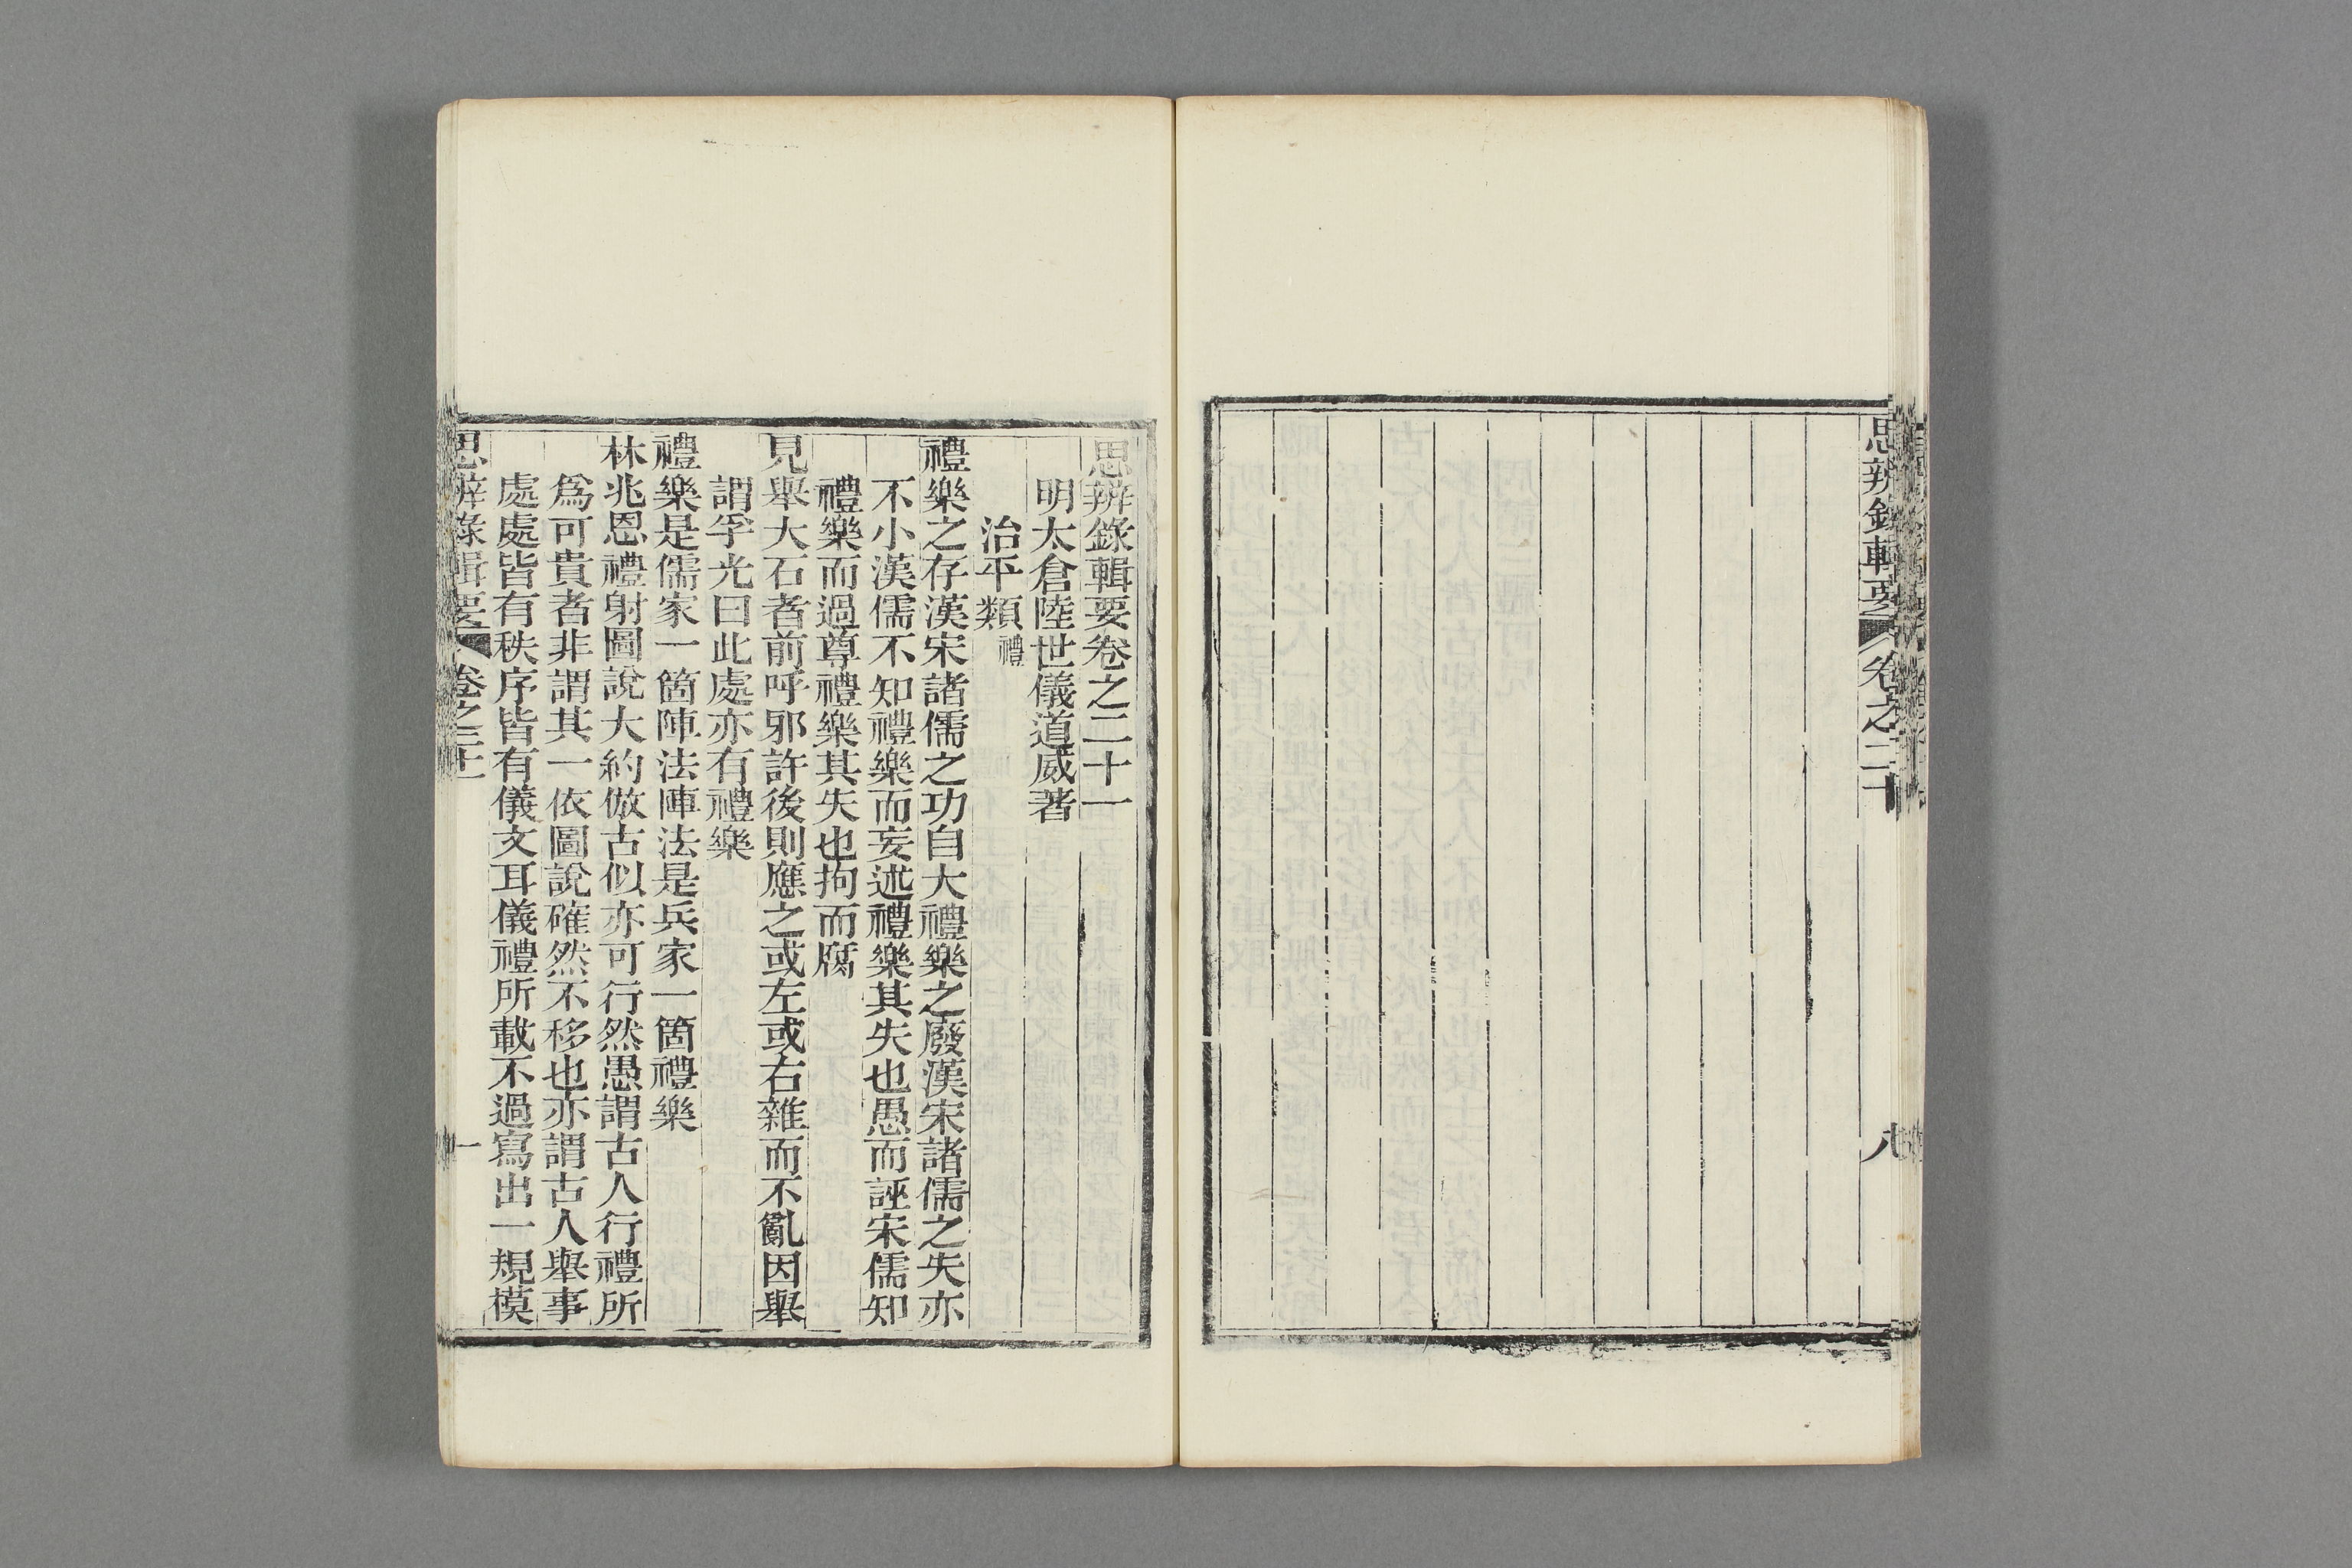 思辨錄輯要 卷之二十 八
思辨錄輯要卷之二十一
明太倉陸世儀道威著
治平類禮
禮樂之存漢宋諸儒之功自大禮樂之廢漢宋諸儒之失亦
不小漢儒不知禮樂而妄述禮樂其失也愚而誣宋儒知
禮樂而過尊禮樂其失也拘而腐
見舉大石者前呼邪許後則應之或左或右雜而不亂因舉
謂孚光曰此處亦有禮樂
禮樂是儒家一箇陣法陣法是兵家一箇禮樂
林兆恩禮射圖說大約倣古似亦可行然愚謂古人行禮所
爲可貴者非謂其一依圖說確然不移也亦謂古人舉事
處處皆有秩序皆有儀文耳儀禮所載不過寫出一規模
思辨錄輯要 卷之二十一 一